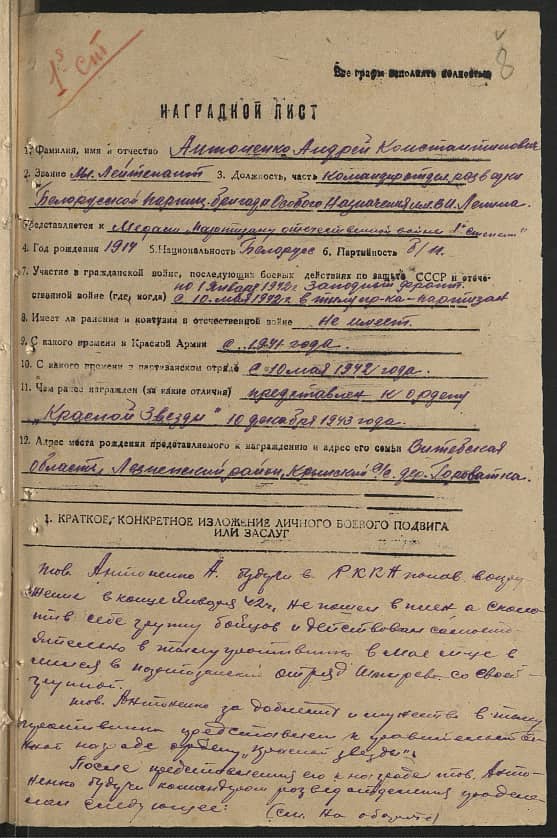 1й ст
8
Все графы заполнять полностью
НАГРАДНОЙ ЛИСТ
1. Фамилия, имя и отчество Антоненко Андрей Константинович
2. Звание Мл. Лейтенант 3. Должность, часть командир отдел. разведки
Белорусской партиз. бригады Особого Назначения им. В.И. Ленина.
Представляется к Медали „Партизану отечественной войны 1й степени"
4. Год рождения 1914 5. Национальность Белорус 6. Партийность б/п.
7. Участие в гражданской войне, последующих боевых действиях по защите СССР и отече-
по 1 января 1942г. Западный фронт.
ственной войне (где, когда) с 10 мая 1942г. в тылу пр-ка - партизан
8. Имеет ли ранения и контузии в отечественной войне не имеет.
9. С какого времени в Красной Армии с 1941 года.
10. С какого времени в партизанском отряде с 10 мая 1942 года.
11. Чем ранее награжден (за какие отличия) представлен к ордену
„Красной Звезды" 10 декабря 1943 года.
12. Адрес места рождения представляемого к награждению и адрес его семьи Витебская
область, Лиозненский район, Крынский с/с. дер.
1. КРАТКОЕ, КОНКРЕТНОЕ ИЗЛОЖЕНИЕ ЛИЧНОГО БОЕВОГО ПОДВИГА
ИЛИ ЗАСЛУГ
тов. Антоненко А. будучи в РККА попав в окру-
жение в конце января 42г. не пошел в плен а сколо-
тив себе группу бойцов и действовал самосто-
ятельно в тылу противника в мае м-це в
лился в партизанский отряд со своей
группой.
тов. Антоненко за доблесть и мужество в тылу
противника представлен к правительствен-
ной награде ордену „Красной звезды".
После представления его к награде тов. Анто-
ненко будучи командиром разведотделения продела-
лал следующее: (см. на обороте)